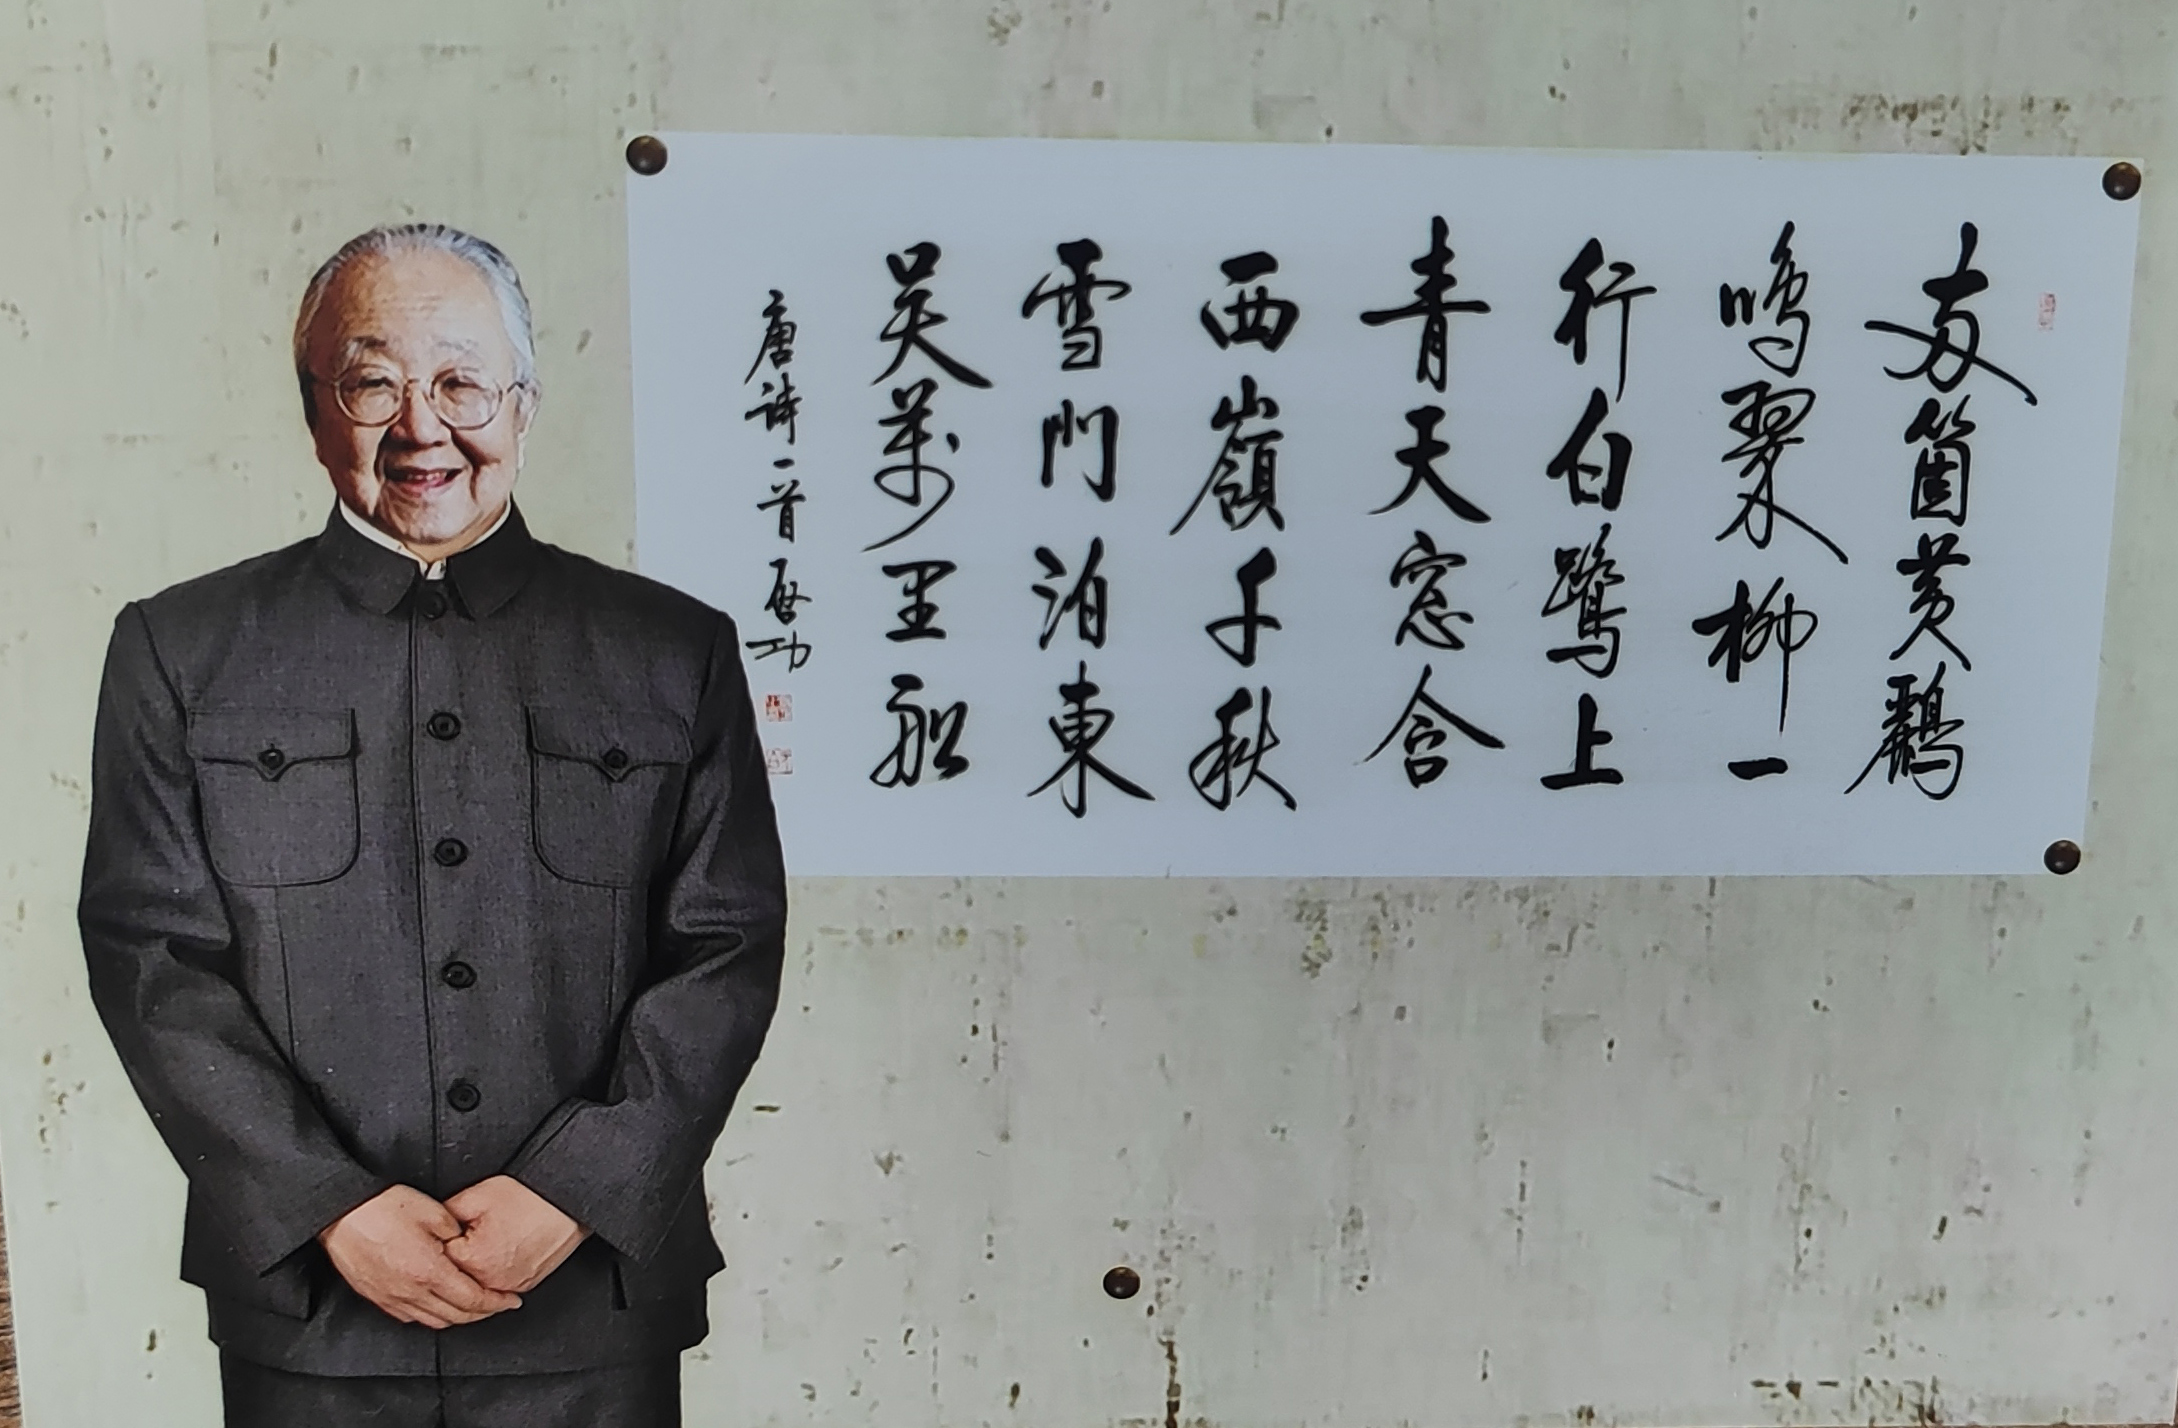 两箇黄鸝
鳴翠柳一
行白鷺上
青天窓含
西嶺千秋
雪門泊東
吴萬里船
唐詩一首 啟功